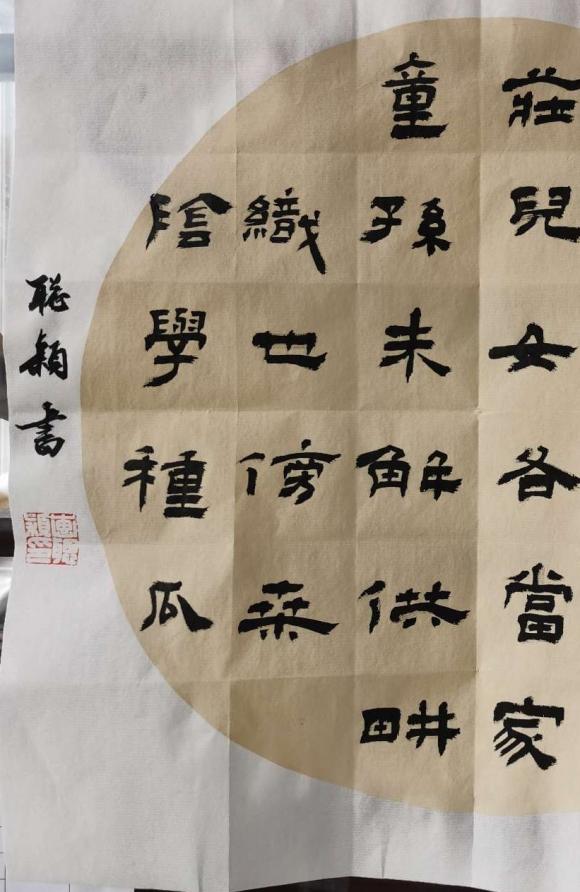 莊兒女各當家
童孫未解供畊
織也傍桒
陰學種瓜
聡颖書